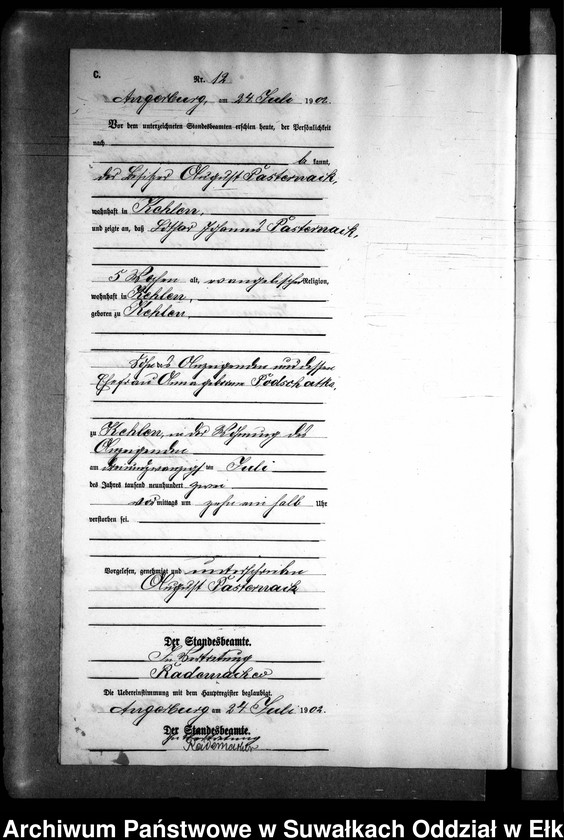 C.
Nr. 12
Angerburg, am 24 Juli 1902.
Vor dem unterzeichneten Standesbeamten erschien heute, der Persönlichkeit
nach
be kannt,
der Besitzer August Pasternack,
wohnhaft in Kehlen,
und zeigte an, daß Lothar Johannes Pasternack,
5 Wochen alt, evangelischer Religion,
wohnhaft in Kehlen,
geboren zu Kehlen,
Sohn des Anzeigenden und dessen
Ehefrau Anna geborene Podschatke,
zu Kehlen, in der Wohnung des
Anzeigenden
am dreiundzwanzigsten Juli
des Jahres tausend neunhundert zwei
vor mittags um zehn ein halb Uhr
verstorben sei.
Vorgelesen, genehmigt und unterschrieben
August Pasternack
Der Standesbeamte.
In Vertretung
Rademacher
Die Uebereinstimmung mit dem Hauptregister beglaubigt.
Angerburg am 24 Juli 1902.
Der Standesbeamte.
In Vertretung
Rademacher
Archiwum Państwowe w Suwałkach Oddział w Ełk